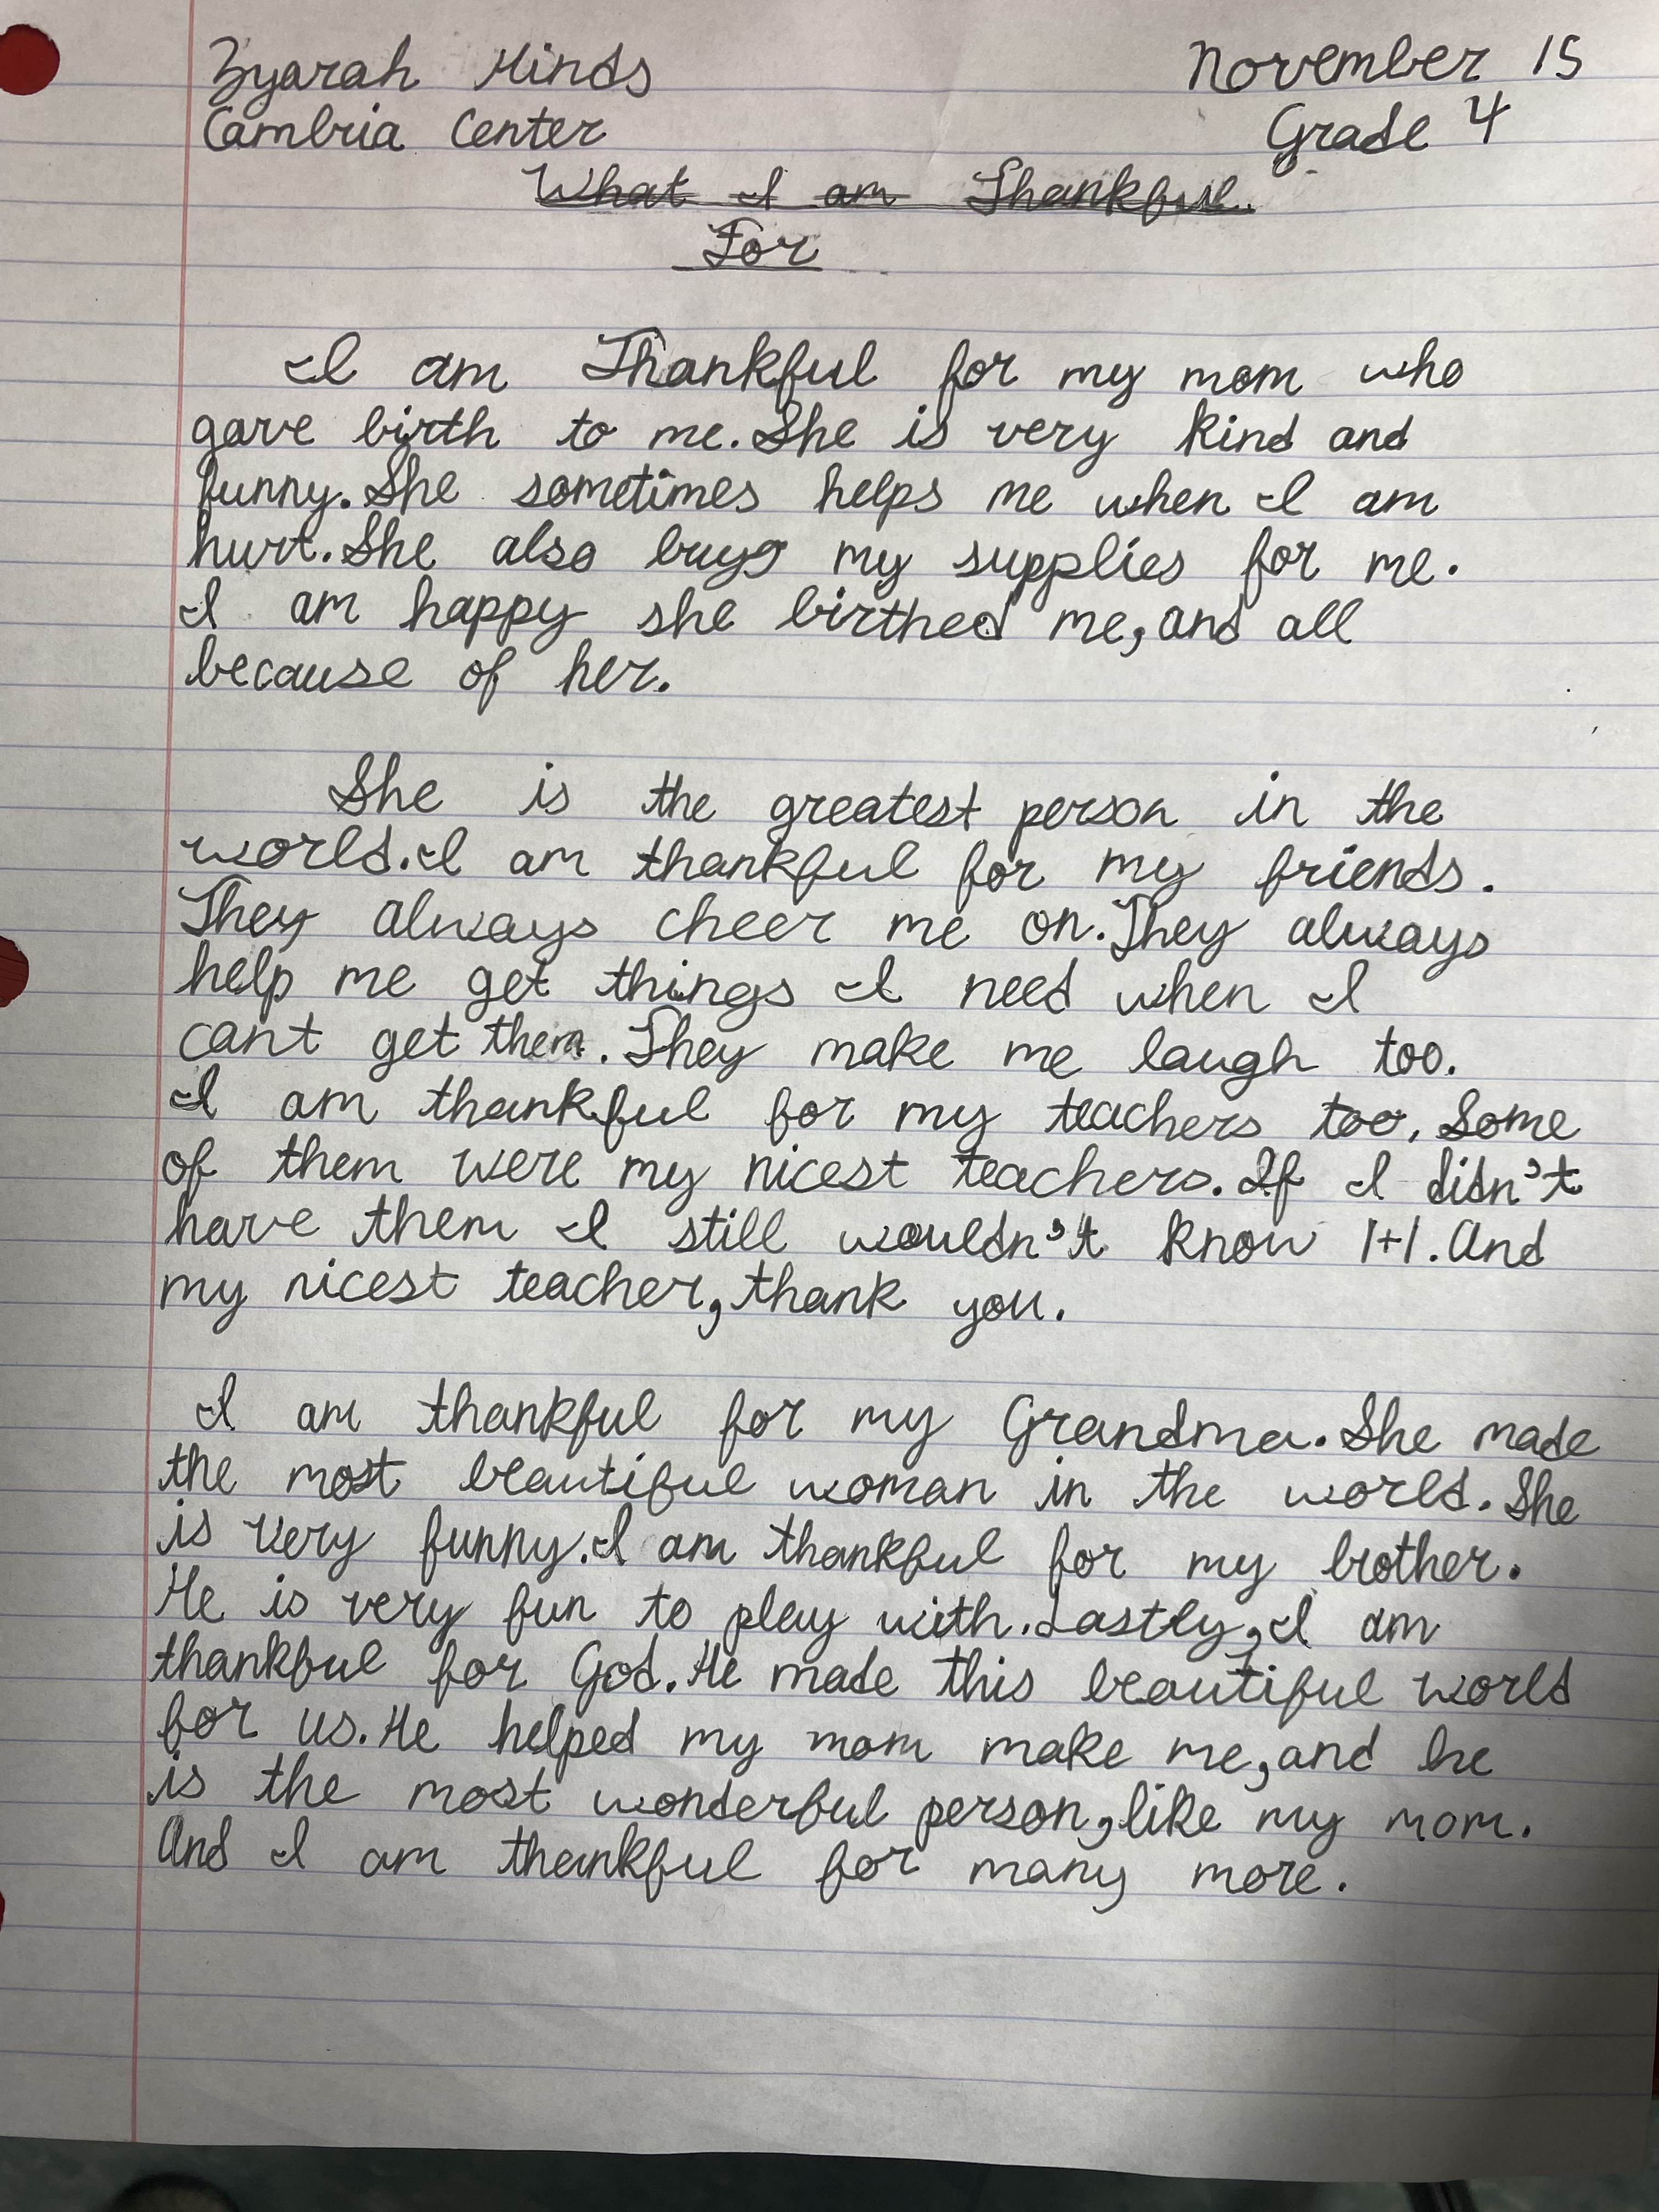 Zyarah Hinds November 15
Cambria Center Grade 4
What I am Thankful
For
I am Thankful for my mom who
gave birth to me. She is very kind and
funny. She sometimes helps me when I am
hurt. She also buys my supplies for me.
I am happy she birthed me, and all
because of her.
She is the greatest person in the
world. I am thankful for my friends.
They always cheer me on. They always
help me get things I need when I
cant get them. They make me laugh too.
I am thankful for my teachers too, Some
of them were my nicest teachers. If I didn't
have them I still wouldn't know 1+1. And
my nicest teacher, thank you.
I am thankful for my Grandma. She made
the most beautiful woman in the world. She
is very funny. I am thankful for my brother.
He is very fun to play with. Lastly, I am
thankful for God. He made this beautiful world
for us. He helped my mom make me, and he
is the most wonderful person, like my mom.
And I am thankful for many more.